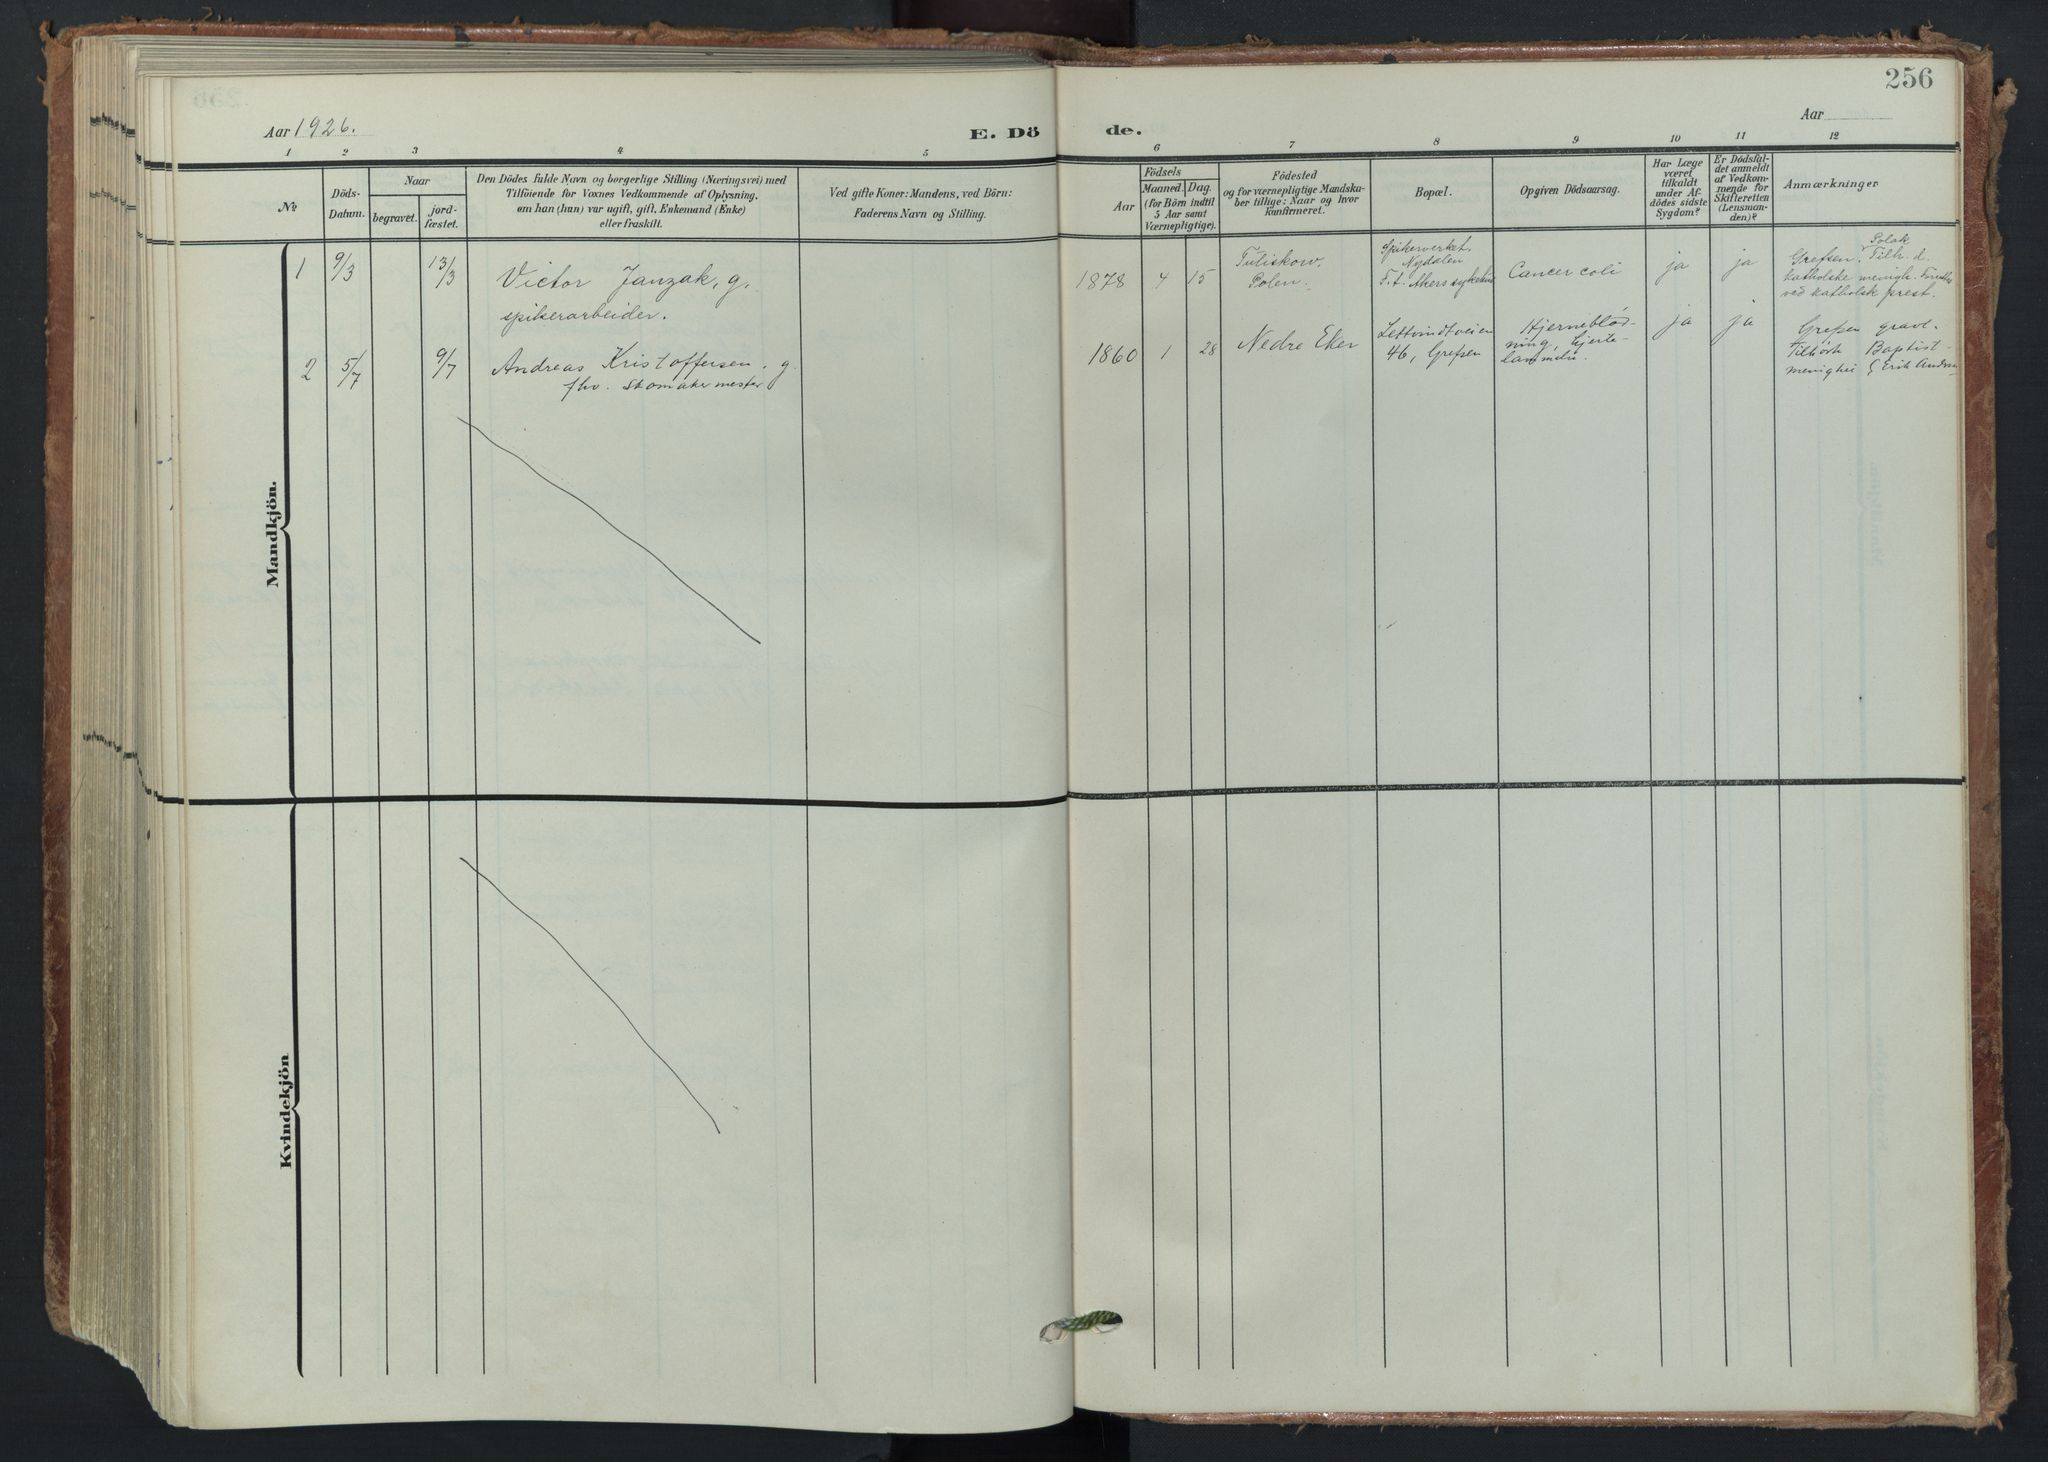 256
Aar 1926.
E. Dö de.
Aar
1 2 3 4 5 6 7 8 9 10 11 12
No.
Döds-
Datum.
Naar
begravet.
jord-
fæstet.
Den Dödes fulde Navn og borgerlige Stilling (Næringsvei) med
Tilföiende for Voxnes Vedkommende af Oplysning.
om han (hun) var ugift, gift, Enkemand (Enke)
eller fraskilt.
Ved gifte Koner: Mandens, ved Börn:
Faderens Navn og Stilling.
Födsels
Aar
Maaned. Dag.
(for Börn indtil
5 Aar samt
Værnepligtige).
Födested
og for værnepligtige Mandska-
ber tillige: Naar og hvor
konfirmeret.
Bopæl.
Opgiven Dödsaarsag.
Har Læge
været
tilkaldt
under Af-
dödes sidste
Sygdom?
Er Dödsfal-
det anmeldt
af Vedkom-
mende for
Skifteretten
(Lensman-
den)?
Anmærkninger
Mandkjön.
1
9/3
13/3
Victor Janzak, g.
spikerarbeider.
1878
4
15
Tutiskow.
Polen.
Spikerverket,
Nydalen
F. t. Akers sykehus
Cancer coli
ja
ja
Polak
Grefsen. Tilh. d.
katholske menigh.
ved katholsk prest.
2
5/7
9/7
Andreas Kristoffersen, g.
fhv. skomakermester
1860
1
28
Nedre Eker
Lettvindtveien
46, Grefsen
Hjerneblöd-
ning, Hjerte-
lammelse.
ja
ja
Grefsen gravl.
Tilhörte Baptist-
menighet Erik Andersen
Kvindekjön